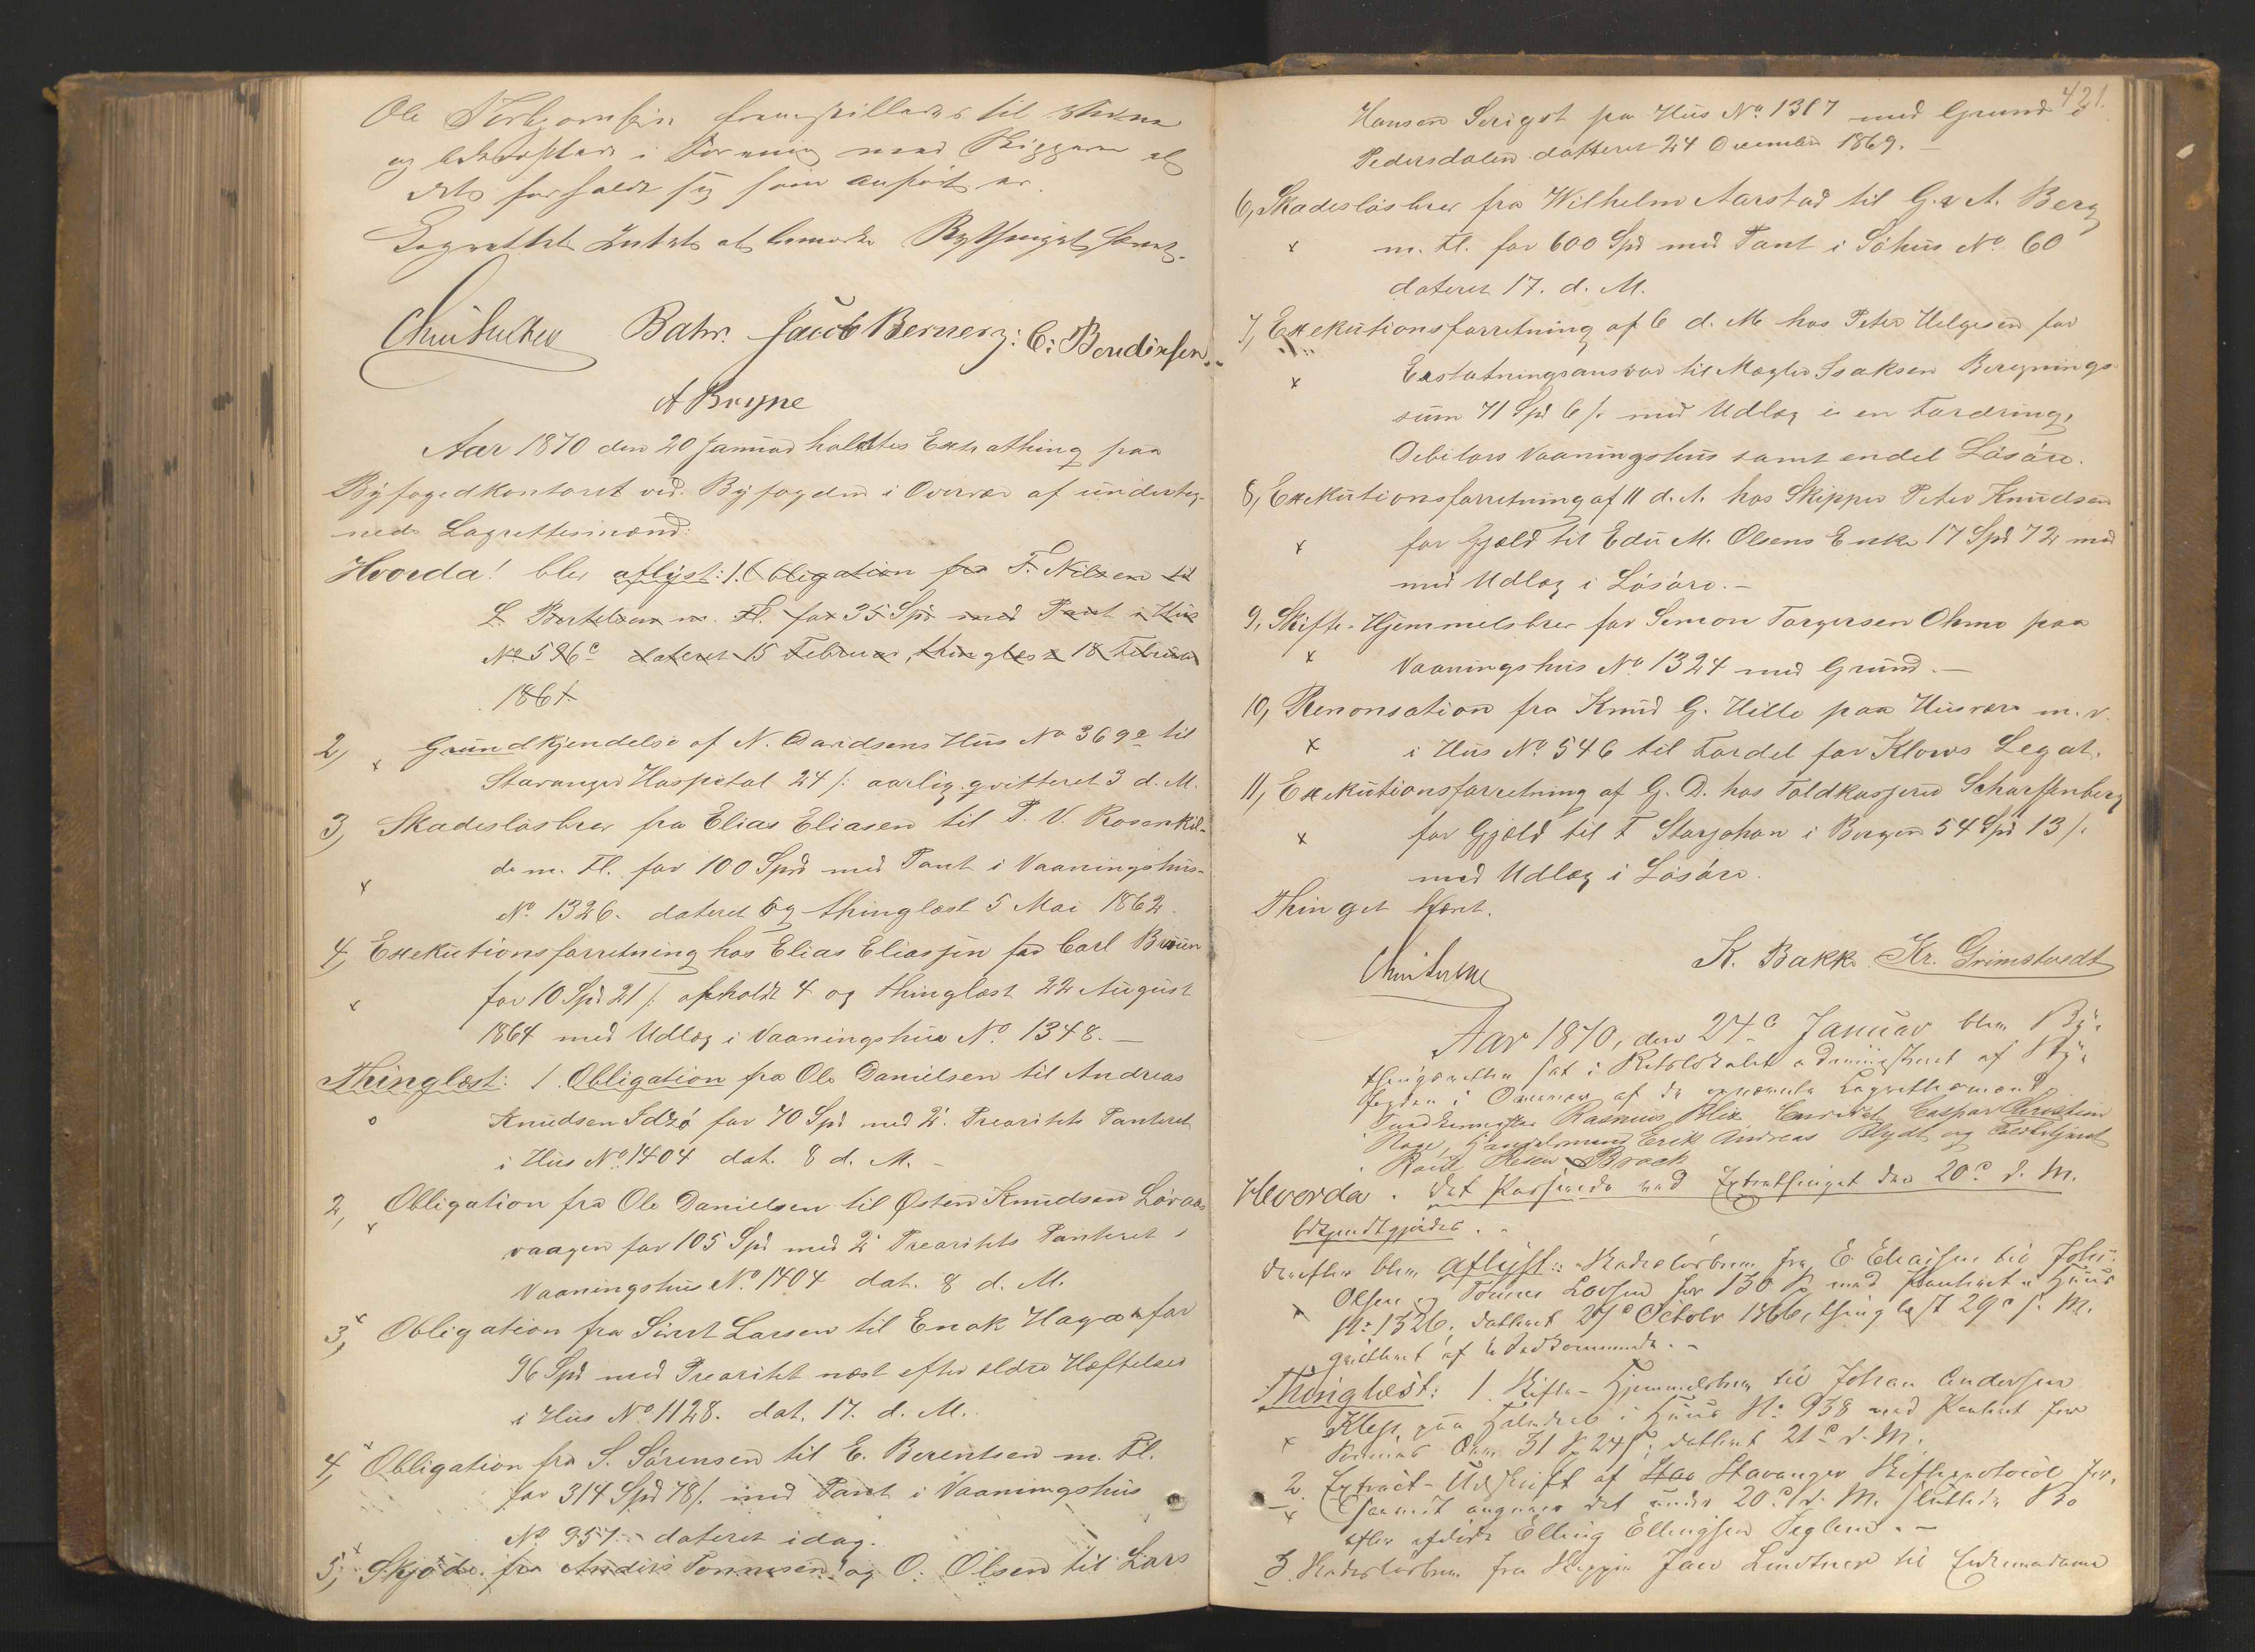 Ole Torbjornsen fremstilledes til Vidne
og bekræftede i Forening med Skipperen at
dets forholdt sig som anført er.
Lagrettet Intet at bemærke Bythinget hævet.
Christensen Bahr. Jacob Berner: C: Berentsen.
A Bryne
Aar 1870 den 20 Januar holdtes Extrathing paa
Byfogedkontoret ved Byfogden i Overvær af underteg-
nede Lagrettesmænd:
Hvorda! blev aflyst: 1. Obligation fra T. Nilsen til
L. Bertelsen m. Fl. for 35 Spd med Pant i Hus
No 596c dateret 15 Februar, thinglæst 18 Februar
1861.
2, Grundkjendelse af N. Davidsens Hus No 369a til
Stavanger Hospital 24 /: aarlig. qvitteret 3 d. M.
3, Skadesløsbrev fra Elias Eliasen til P. V. Rosenkil-
de m. Fl. for 100 Spd med Pant i Vaaningshus-
No 1326. dateret og thinglæst 5 Mai 1862.
4, Exekutionsforretning hos Elias Eliassen for Carl Bruun
for 10 Spd 21 /: afholdt 4 og thinglæst 22 August
1864 med Udlæg i Vaaningshus No. 1348. –
Thinglæst: 1. Obligation fra Ole Danielsen til Andreas
Knudsen Idzø for 70 Spd med 2: Prioritets Panteret
i Hus No. 1404 dat. 8 d. M. –
2, Obligation fra Ole Danielsen til Østen Knudsen Løvaas
vaagen for 105 Spd med 2: Prioritets Panteret i
Vaaningshus No. 1404 dat. 8 d. M.
3, Obligation fra Sivert Larsen til Enok Hagen for
96 Spd med Prioritet næst efter ældre Hæftelser
i Hus No. 1128. dat. 17. d. M.
4, Obligation fra S. Sørensen til E. Berentsen m. Fl.
for 314 Spd 78 /. med Pant i Vaaningshus
No 957. dateret idag.
5, Skjøde fra Anders Tønnesen og O: Olsen til Lars
421.
Hansen Serigst paa Hus No. 1317 med Grund i
Pedersdalen datteret 24 December 1869. –
6, Skadesløsbrev fra Wilhelm Aarstad til G. & A. Berg
m. Fl. for 600 Spd med Pant i Søhus No. 60
dateret 17. d. M.
7, Exekutionsforretning af 6 d. M. hos Peter Helgesen for
Erstatningsansvar til Mægler Isaksen Beregnings-
sum 71 Spd 6 /. med Udlæg i en Fordring,
Debitors Vaaningshus samt endel Løsøre.
8, Exekutionsforretning af 11 d. M. hos Skipper Peter Knudsen
for Gjæld til Edu M. Olsens Enke 17 Spd 72 med
med Udlæg i Løsøre. –
9, Skifte-Hjemmelsbrev for Simon Torgersen Ohmo paa
Vaaningshus No. 1324 med Grund. –
10, Renonsation fra Knud G. Hille paa Husvær m. v.
i Hus No. 546 til Fordel for Klows Legat.
11, Exekutionsforretning af G. D. hos Toldkasserer Scharffenberg
for Gjæld til F Storjohan i Bergen 54 Spd 13 /.
med Udlæg i Løsøre.
Thinget hævet.
Christensen K. Bakke Kr. Grimstvedt
Aar 1870, den 27de Januar blev By-
thingsretten sat i Retslokalet administreret af By-
fogden i Overvær af de opnævnte Lagrettesmænd
Rasmus Blix Caspar Christian
Erik Andreas Blydt og
Brock
Hvorda. det Passerede ved Extrathinget den 20de d. M.
bekjendtgjordes. –
derefter blev aflyst: Skadesløsbrev fra E Eliassen til John
Olsen og Tønnes Larsen for 130 Sp med Panteret i Huus
No: 1326. datteret 27de October 1866, thinglæst 29de s. M.
qvitteret af Vedkommende. –
Thinglæst: 1. Skifte-Hjemmelsbrev til Johan Andersen
Klep, paa Halvdel i Huus No: 938 med Panteret for
31 Sp 24 /: datteret 21de d. M.
2. Extract-Udskrift af Stavanger Skifteprotocol
angaaende det under 20de d. M. sluttede Bo
efter afdøde Elling Ellingsen Teglund. –
3. Skadesløsbrev fra Skipper Jan Lindtner til Enkemadame